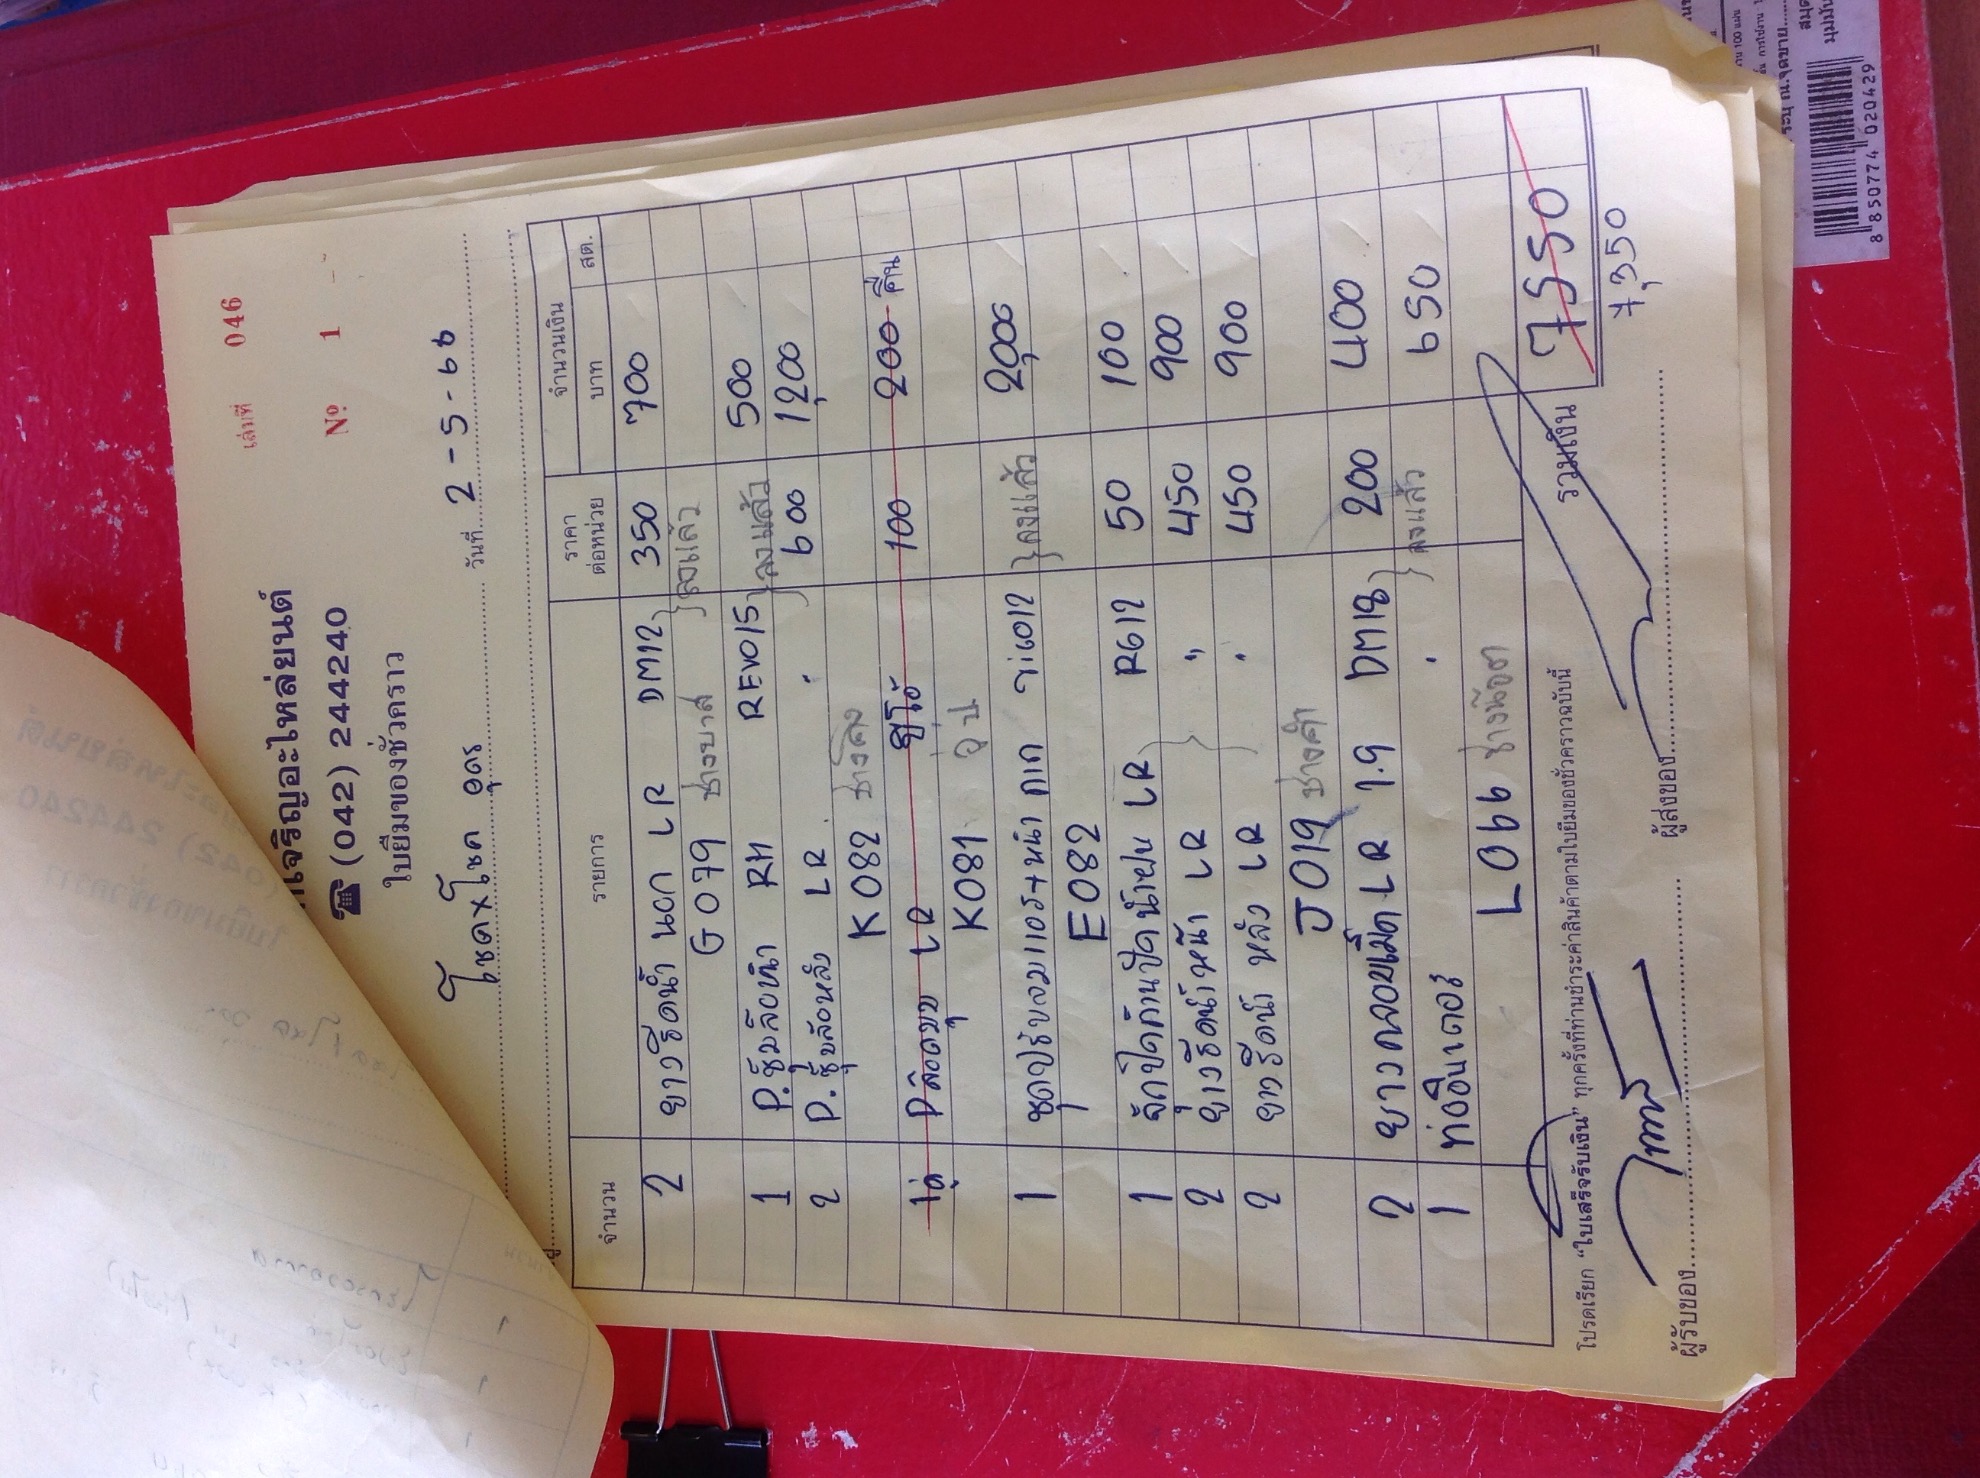 เล่มที่ 046
เจริญอะไหล่ยนต์
☎ (042) 244240
Nº 1
ใบยืมของชั่วคราว
โชคxโชค อุดร วันที่ 2-5-66
จำนวน รายการ ราคาต่อหน่วย จำนวนเงิน
บาท สต.
2 ยางรีดน้ำ นอก LR DM12 350 700
G079 ช่างบาส }ลงแล้ว
1 P.ซุ้มล้อหน้า RH REVO15 500
2 P.ซุ้มล้อหลัง LR " 600 1200
}ลงแล้ว
K082 ช่างโต้ง
LR 100 200 คืน
K081
1 ชุดปรับลมแอร์+หน้ากาก วีโก้12 2,000
E082 }ลงแล้ว
1 ปิดก้านปัดน้ำฝน LR RG12 50 100
2 ยางรีดน้ำหน้า LR " 450 900
2 ยางรีดน้ำ หลัง LR " 450 900
J019 ช่างค้ำ
2 LR 1.9 DM18 200 400
1 ท่ออินเตอร์ " 650
}ลงแล้ว
L066
รวมเงิน 7550
7,350
โปรดเรียก "ใบเสร็จรับเงิน" ทุกครั้งที่ท่านชำระค่าสินค้าตามใบยืมของชั่วคราวฉบับนี้
ผู้รับของ ผู้ส่งของ
8 850774 020429